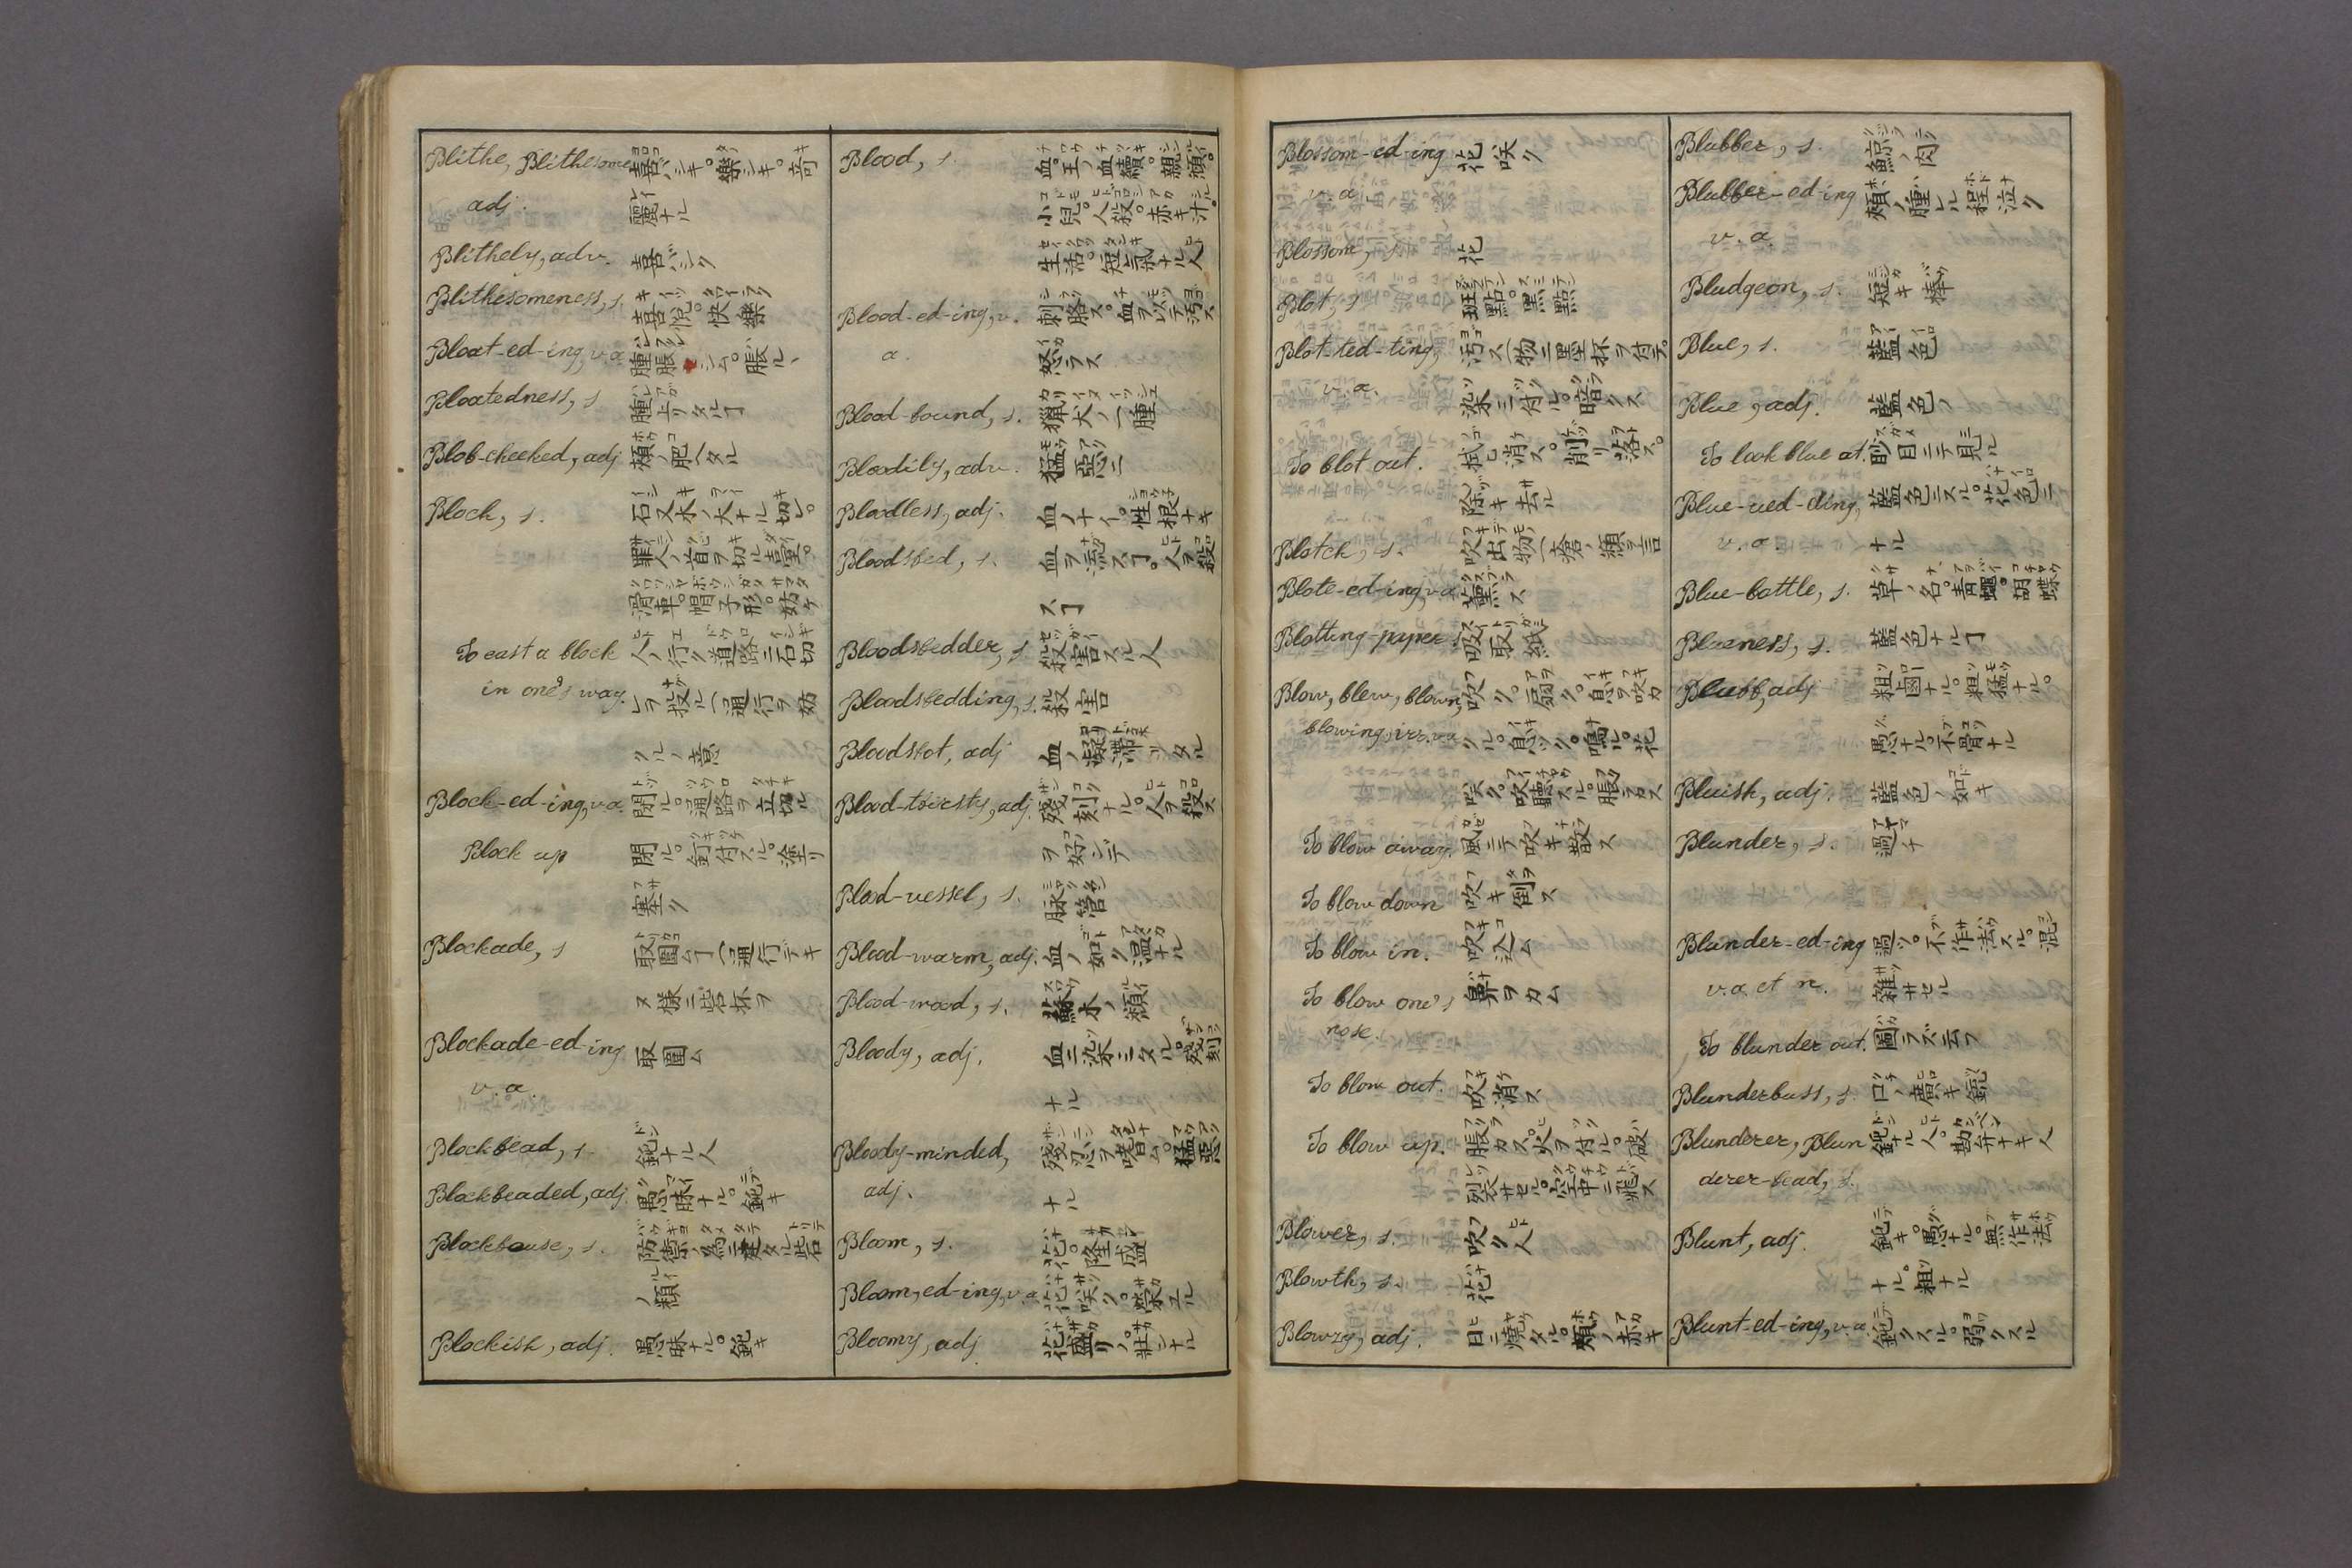 Blithe, Blithesome 喜バシキ。樂シキ。奇
adj. 麗ナル
Blithely, adv. 喜バシク
Blithesomeness, s. 喜悦。快樂
Bloat-ed-ing, v.a. 腫脹セシム。脹ル、
Bloatedness, s 腫上リタルヿ
Blob-cheeked, adj 頰ノ肥ヘタル
Block, s. 石又木ノ大ナル切レ。
罪人ノ首ヲ切ル臺。
滑車。帽子形。妨ケ
To cast a block 人ノ行ク道路ニ石切
in one's way. レヲ投ル(通行ヲ妨
クルノ意
Block-ed-ing, v.a. 閉ル。通路ヲ立切ル
Block up 閉ル。釘付スル。塗リ
塞ク
Blockade, s 取圍ムヿ(通行デキ
ヌ樣ニ砦杯ヲ
Blockade-ed-ing 取圍ム
v.a.
Blockhead, s. 鈍ナル人
Blockheaded, adj. 愚昧ナル。鈍キ
Blockhouse, s. 防禦ノ為ニ建タル砦
ノ類
Blockish, adj. 愚昧ナル。鈍キ
Blood, s. 血。王ノ血續。親類。
小兒。人殺。赤キ汁。
生活。短氣ナル人
Blood-ed-ing, v. 刺胳ス。血ヲ以テ汚ス
a. 怒ラス
Blood-hound, s. 獵犬ノ一種
Bloodily, adv. 猛惡ニ
Bloodless, adj. 血ノナイ。性根ナキ
Bloodshed, s. 血ヲ流スヿ。人ヲ殺
スヿ
Bloodshedder, s 殺害スル人
Bloodshedding, s. 殺害
Bloodshot, adj 血ノ凝滯リタル
Blood-thirsty, adj. 殘刻ナル。人ヲ殺ス
ヲ好ンデ
Blood-vessel, s. 脉管
Blood-warm, adj. 血ノ如ク温ナル
Blood-wood, s. 蘇木ノ類
Bloody, adj. 血ニ染ミタル。殘刻
ナル
Bloody-minded, 殘忍ヲ嗜ム。猛惡
adj. ナル
Bloom, s. 花。隆盛
Bloom-ed-ing, v.a. 花咲ク。榮エル
Bloomy, adj 花盛リノ。壯ンナル
Blossom-ed-ing 花咲ク
v.a.
Blossom, s. 花
Blot, s 斑點。黑點
Blot-ted-ting, 汚ス(物ニ墨杯ヲ付テ。
v.a. 染ミ付ル。暗クス
To blot out. 拭ヒ消ス。削リ落ス。
除キ去ル
Blotch, s. 吹出物(瘡ノ類ヲ言
Blote-ed-ing, v.a. 薰ス
Blotting-paper 吸取紙
Blow, blew, blown, 吹ク。扇ク。息ヲ吹カ
blowing, irr. v.a. クル。息ツク。鳴ル。花
咲ク。吹聽スル。脹ラカス
To blow away. 風ニテ吹キ散ス
To blow down 吹キ倒ス
To blow in. 吹込ム
To blow one's 鼻ヲカム
nose.
To blow out. 吹消ス
To blow up. 脹ラカス。火ヲ付ル。破
裂サセル。空中ニ飛ス
Blower, s. 吹ク人
Blowth, s. 花
Blowzy, adj. 日ニ燒タル。頰ノ赤キ
Blubber, s. 鯨ノ肉
Blubber-ed-ing 頰ノ腫レル程泣ク
v.a.
Bludgeon, s. 短キ棒
Blue, s. 藍色
Blue, adj. 藍色ノ
To look blue at. 眇目ニテ見ル
Blue-ued-uing, 藍色ニスル。花色ニ
v.a. ナル
Blue-bottle, s. 草ノ名。青蠅。胡蝶
Blueness, s. 藍色ナルヿ
Bluff, adj 粗鹵ナル。粗猛ナル。
愚ナル。不骨ナル
Bluish, adj. 藍色ノ如キ
Blunder, s. 過チ
Blunder-ed-ing 過ツ。不作法スル。混
v.a. et n. 雜サセル
To blunder out. 圖ラズ云フ
Blunderbuss, s. 口ノ廣キ銃
Blunderer, Blun 鈍ナル人。勘弁ナキ人
derer-head, s.
Blunt, adj. 鈍キ。愚ナル。無作法
ナル。粗ナル
Blunt-ed-ing, v.a. 鈍クスル。弱クスル